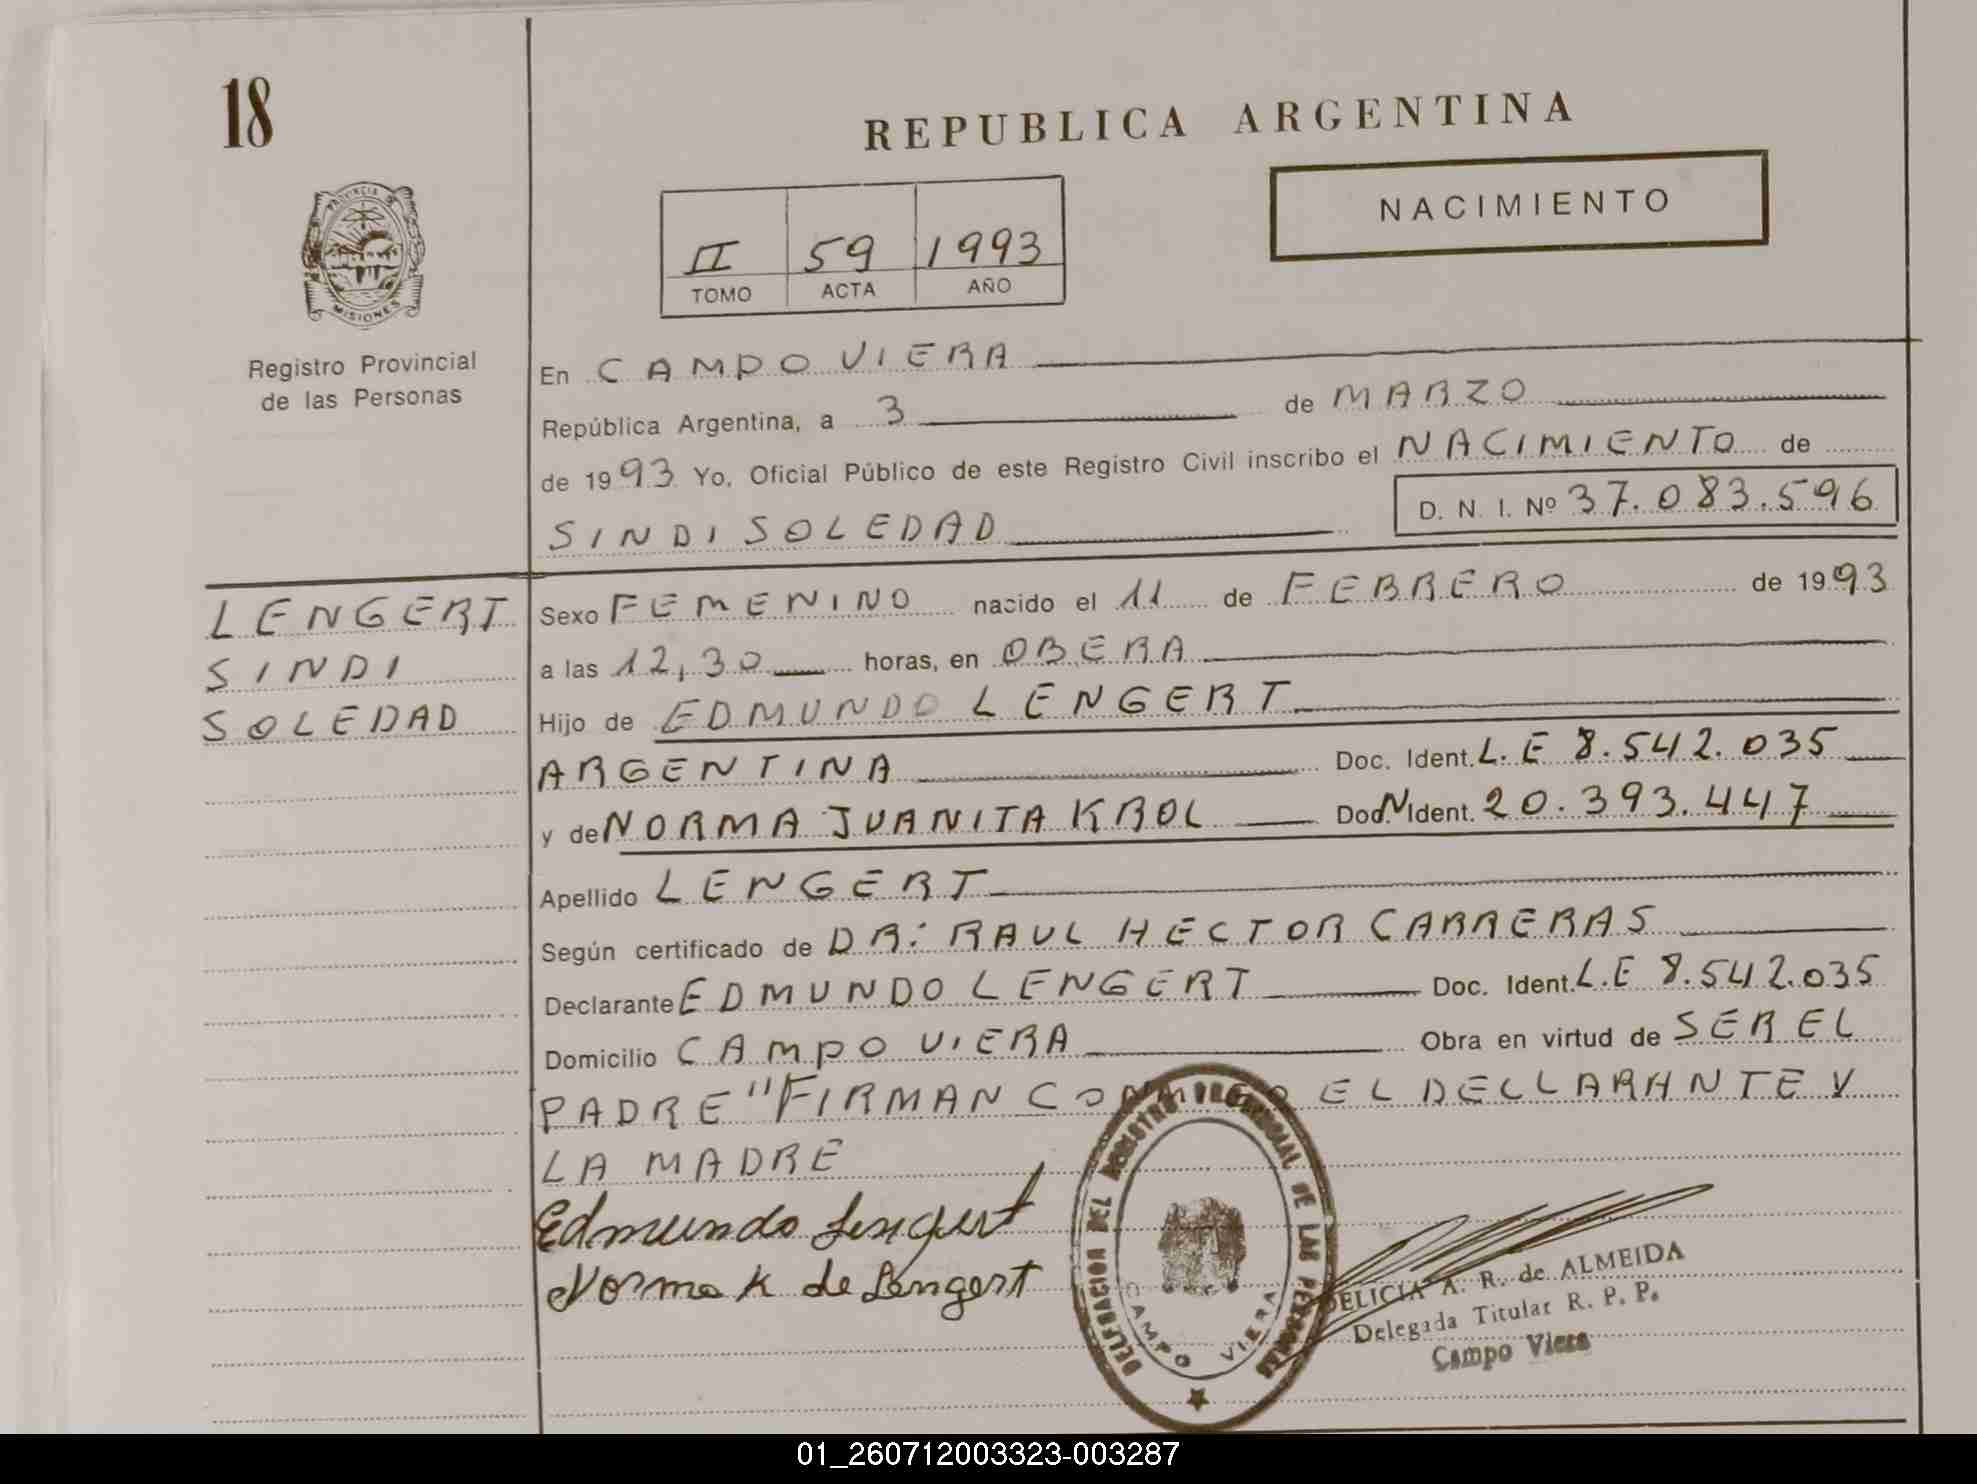 18
REPUBLICA ARGENTINA
NACIMIENTO
II 59 1993
TOMO ACTA AÑO
PROVINCIA DE
MISIONES
Registro Provincial
de las Personas
En CAMPO VIERA
República Argentina, a 3 de MARZO
de 1993 Yo, Oficial Público de este Registro Civil inscribo el NACIMIENTO de
SINDI SOLEDAD D. N. I. Nº 37.083.596
LENGERT
SINDI
SOLEDAD
Sexo FEMENINO nacido el 11 de FEBRERO de 1993
a las 12,30 horas, en OBERA
Hijo de EDMUNDO LENGERT
ARGENTINA Doc. Ident. L.E 8.542.035
y de NORMA JUANITA KROL Doc. N Ident. 20.393.447
Apellido LENGERT
Según certificado de DR: RAUL HECTOR CARRERAS
Declarante EDMUNDO LENGERT Doc. Ident. L.E 8.542.035
Domicilio CAMPO VIERA Obra en virtud de SER EL
PADRE "FIRMAN CONMIGO EL DECLARANTE Y
LA MADRE
Edmundo Lengert
Norma K de Lengert
DELEGACION DEL REGISTRO PROVINCIAL DE LAS PERSONAS
CAMPO VIERA
DELICIA A. R. de ALMEIDA
Delegada Titular R. P. P.
Campo Viera
01_260712003323-003287